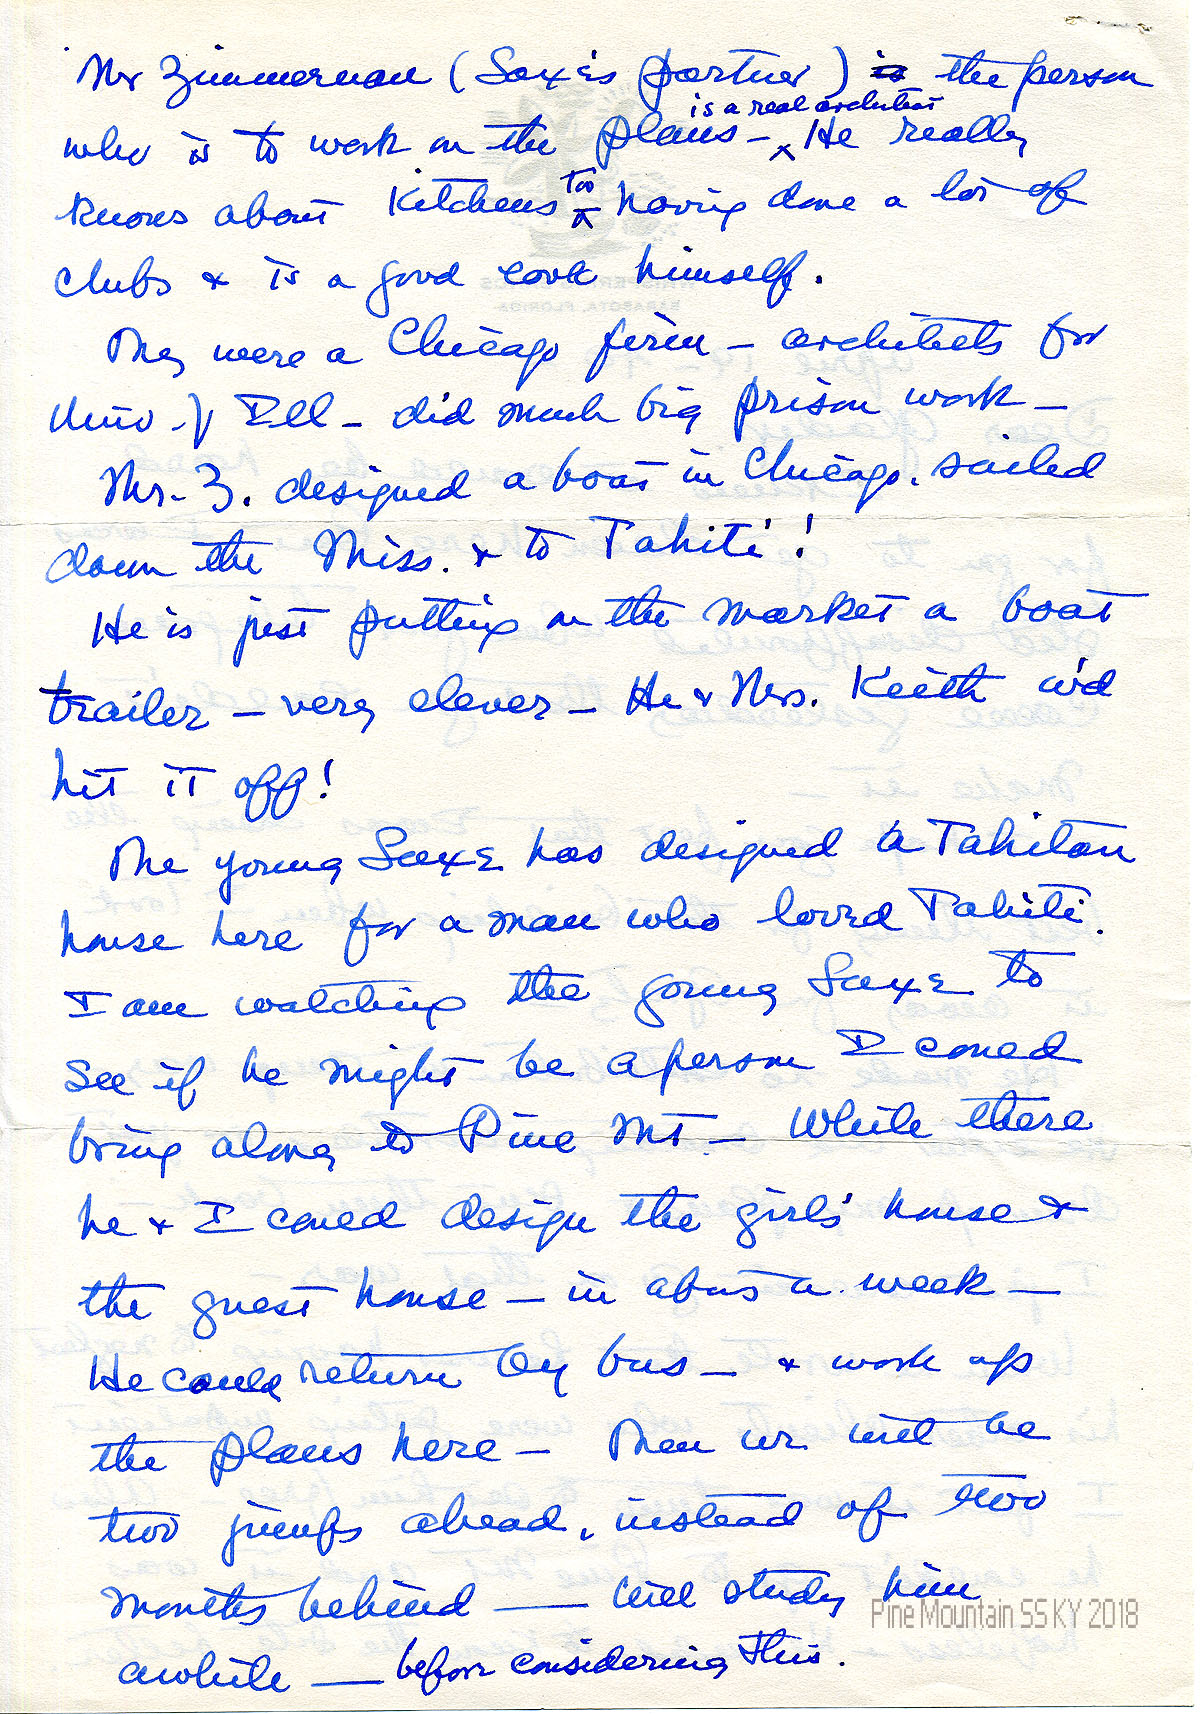 Mr Zimmerman (Saxe's partner) is the person
is a real architect
who is to work on the plans - ^ He really
knows about Kitchens too ^ - having done a lot of
clubs & is a good cook himself.
They were a Chicago firm - architects for
Univ. of Ill - did much big prison work -
Mr. Z. designed a boat in Chicago, sailed
down the Miss. & to Tahiti!
He is just putting on the market a boat
trailer - very clever - He & Mrs. Keith w'd
hit it off!
The young Saxe has designed a Tahitan
house here for a man who loved Tahiti.
I am watching the young Saxe to
see if he might be a person I could
bring along to Pine Mt - While there
he & I could design the girls' house &
the guest house - in about a week -
He could return by bus - & work up
the plans here - Then we will be
two jumps ahead, instead of two
months behind — Will study him
awhile — before considering this.
Pine Mountain SS KY 2018